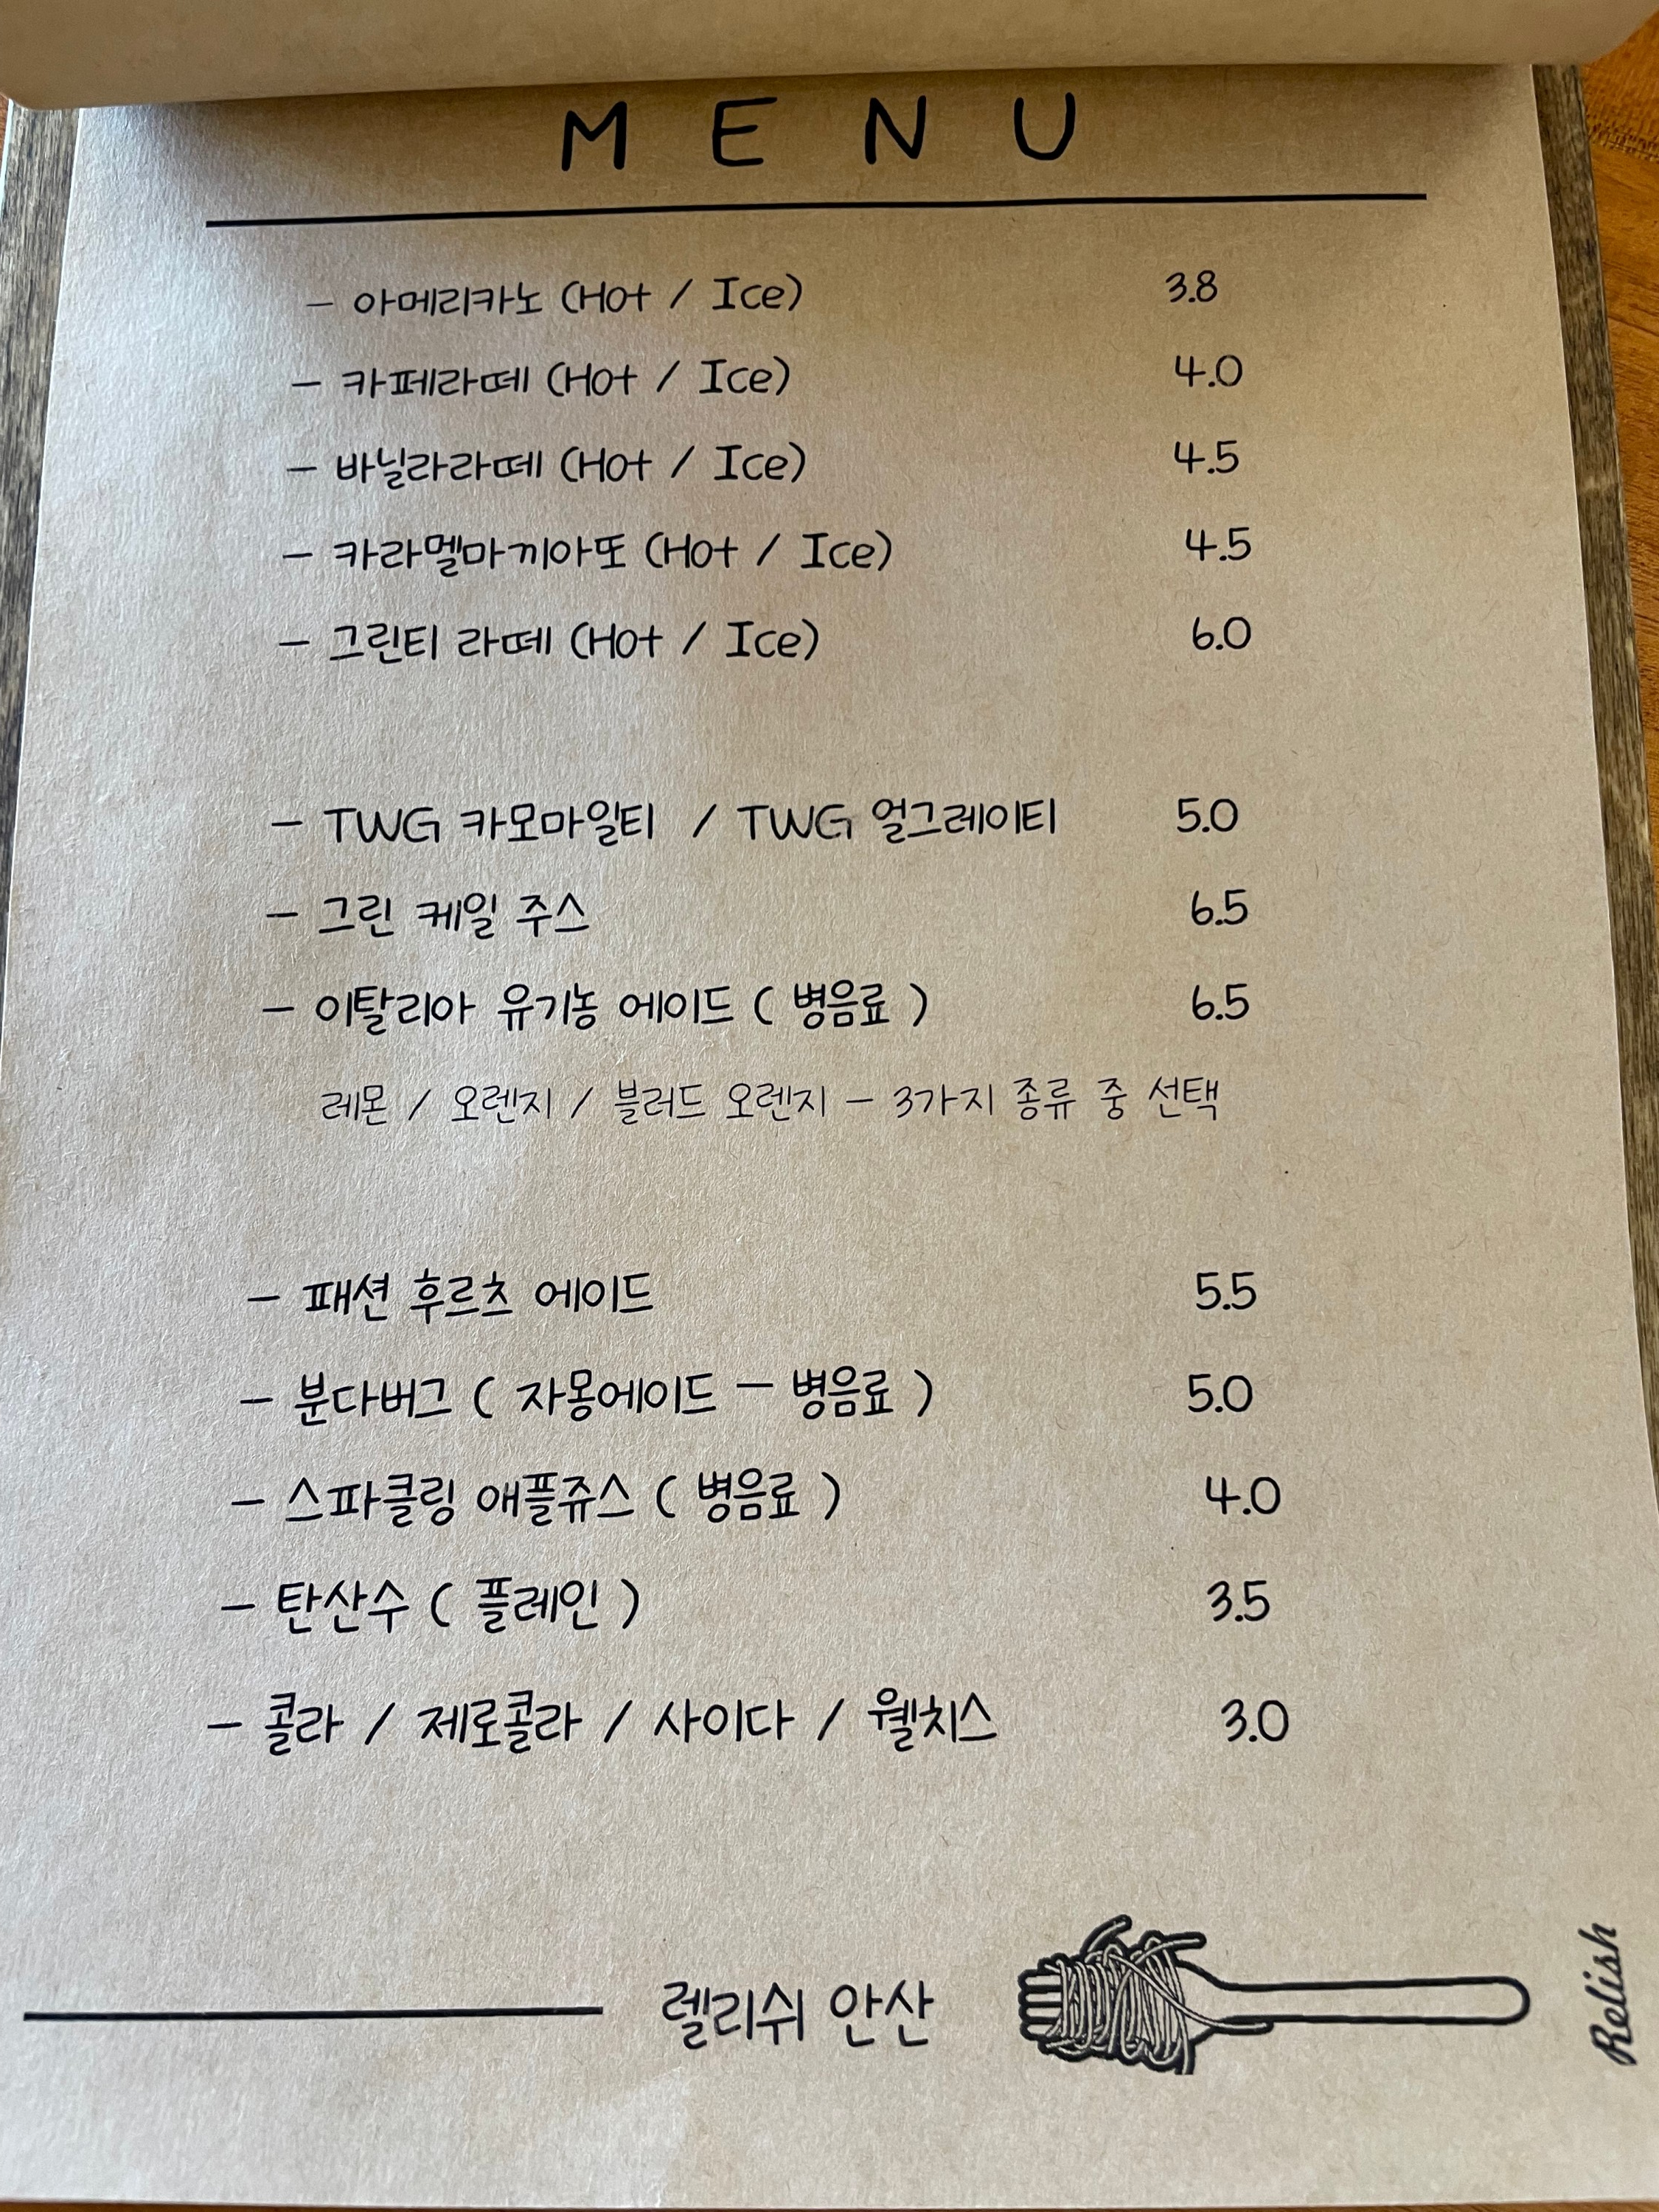 M E N U
- 아메리카노 (Hot / Ice) 3.8
- 카페라떼 (Hot / Ice) 4.0
- 바닐라라떼 (Hot / Ice) 4.5
- 카라멜마끼아또 (Hot / Ice) 4.5
- 그린티 라떼 (Hot / Ice) 6.0
- TWG 카모마일티 / TWG 얼그레이티 5.0
- 그린 케일 주스 6.5
- 이탈리아 유기농 에이드 ( 병음료 ) 6.5
레몬 / 오렌지 / 블러드 오렌지 - 3가지 종류 중 선택
- 패션 후르츠 에이드 5.5
- 분다버그 ( 자몽에이드 - 병음료 ) 5.0
- 스파클링 애플쥬스 ( 병음료 ) 4.0
- 탄산수 ( 플레인 ) 3.5
- 콜라 / 제로콜라 / 사이다 / 웰치스 3.0
렐리쉬 안산
Relish